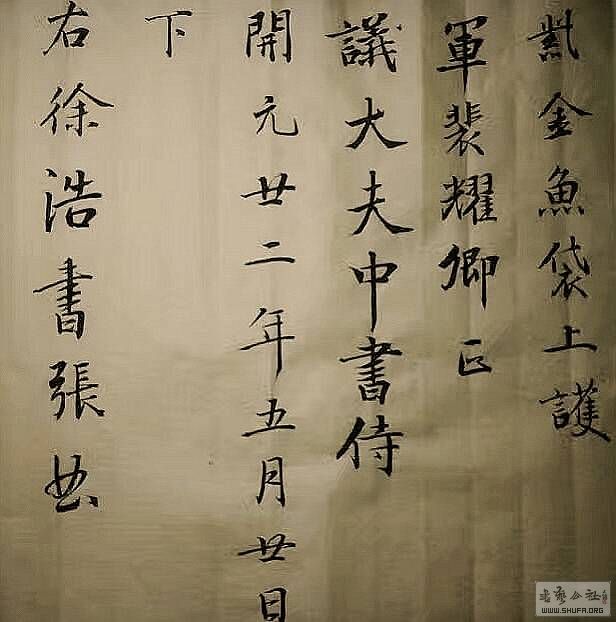 金魚袋上護
軍裴耀卿
議大夫中書侍
開元廿二年五月廿日
下
右徐浩書張
书艺公社
WWW.SHUFA.ORG